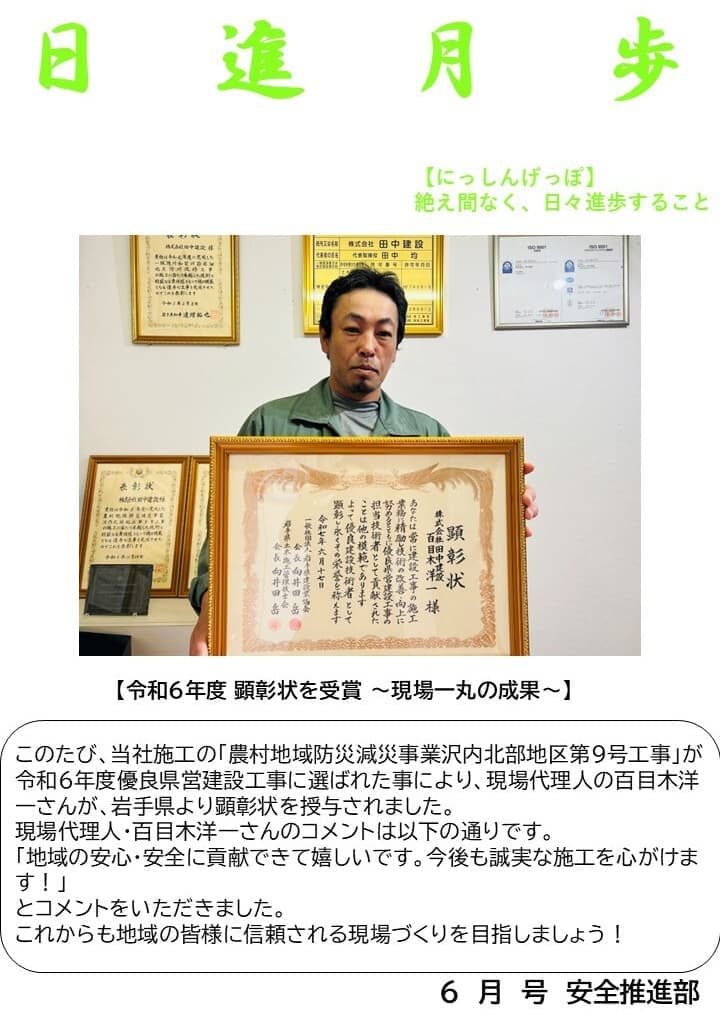 日進月歩
【にっしんげっぽ】
絶え間なく、日々進歩すること
表彰状
株式会社田中建設 様
岩手県知事 達増拓也
株式会社 田中建設
代表取締役 田中 均
ISO 9001
ISO 9001
表彰状
株式会社田中建設 様
顕彰状
株式会社田中建設
百目木洋一 様
あなたは常に建設工事の施工
業務に精励し技術の改善・向上に
努めるとともに優良県営建設工事の
担当技術者として貢献された
ことは他の模範であります
よって優良建設技術者として
顕彰し永くその栄誉を称えます
令和七年六月十七日
一般社団法人 岩手県建設業協会
会長 向井田 岳
岩手県土木施工管理技士会
会長 向井田 岳
【令和6年度 顕彰状を受賞 ～現場一丸の成果～】
このたび、当社施工の「農村地域防災減災事業沢内北部地区第9号工事」が
令和6年度優良県営建設工事に選ばれた事により、現場代理人の百目木洋
一さんが、岩手県より顕彰状を授与されました。
現場代理人・百目木洋一さんのコメントは以下の通りです。
「地域の安心・安全に貢献できて嬉しいです。今後も誠実な施工を心がけま
す！」
とコメントをいただきました。
これからも地域の皆様に信頼される現場づくりを目指しましょう！
6 月 号 安全推進部